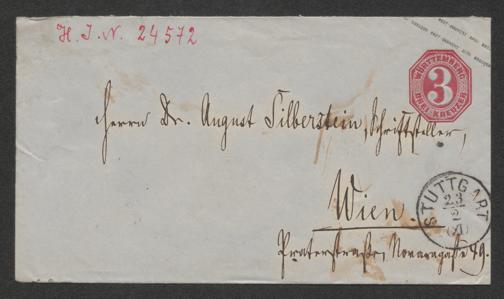 H. I. N. 24572
WÜRTTEMBERG
3
DREI KREUZER
Herrn Dr. August Silberstein, Schriftsteller,
Wien.
STUTTGART
23
2
Praterstraße, Novaragasse 49.